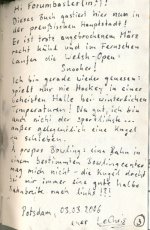 Hi Forumbastler(in)!
Dieses Buch gastiert hier nun in
der preußischen Hauptstadt!
Die ist trotz angebrochenem März
recht kühl und im Fernsehen
laufen die Welsh-Open-
Snooker!
Ich bin gerade wieder genesen -
spielt nur nie Hockey in einer
scheißkalten Halle bei winterlichen
Temperaturen! Na gut, ich bin
auch nicht der sportlichste...
außer gelegentlich eine Kugel
zu schieben.
A propos Bowling: eine Bahn in
einem bestimmten Bowlingcenter
mag mich nicht - die Kugel docht
bei mir immer eine gute halbe
Bahnbreite nach links!?!
Potsdam, 03.03.2006
euer